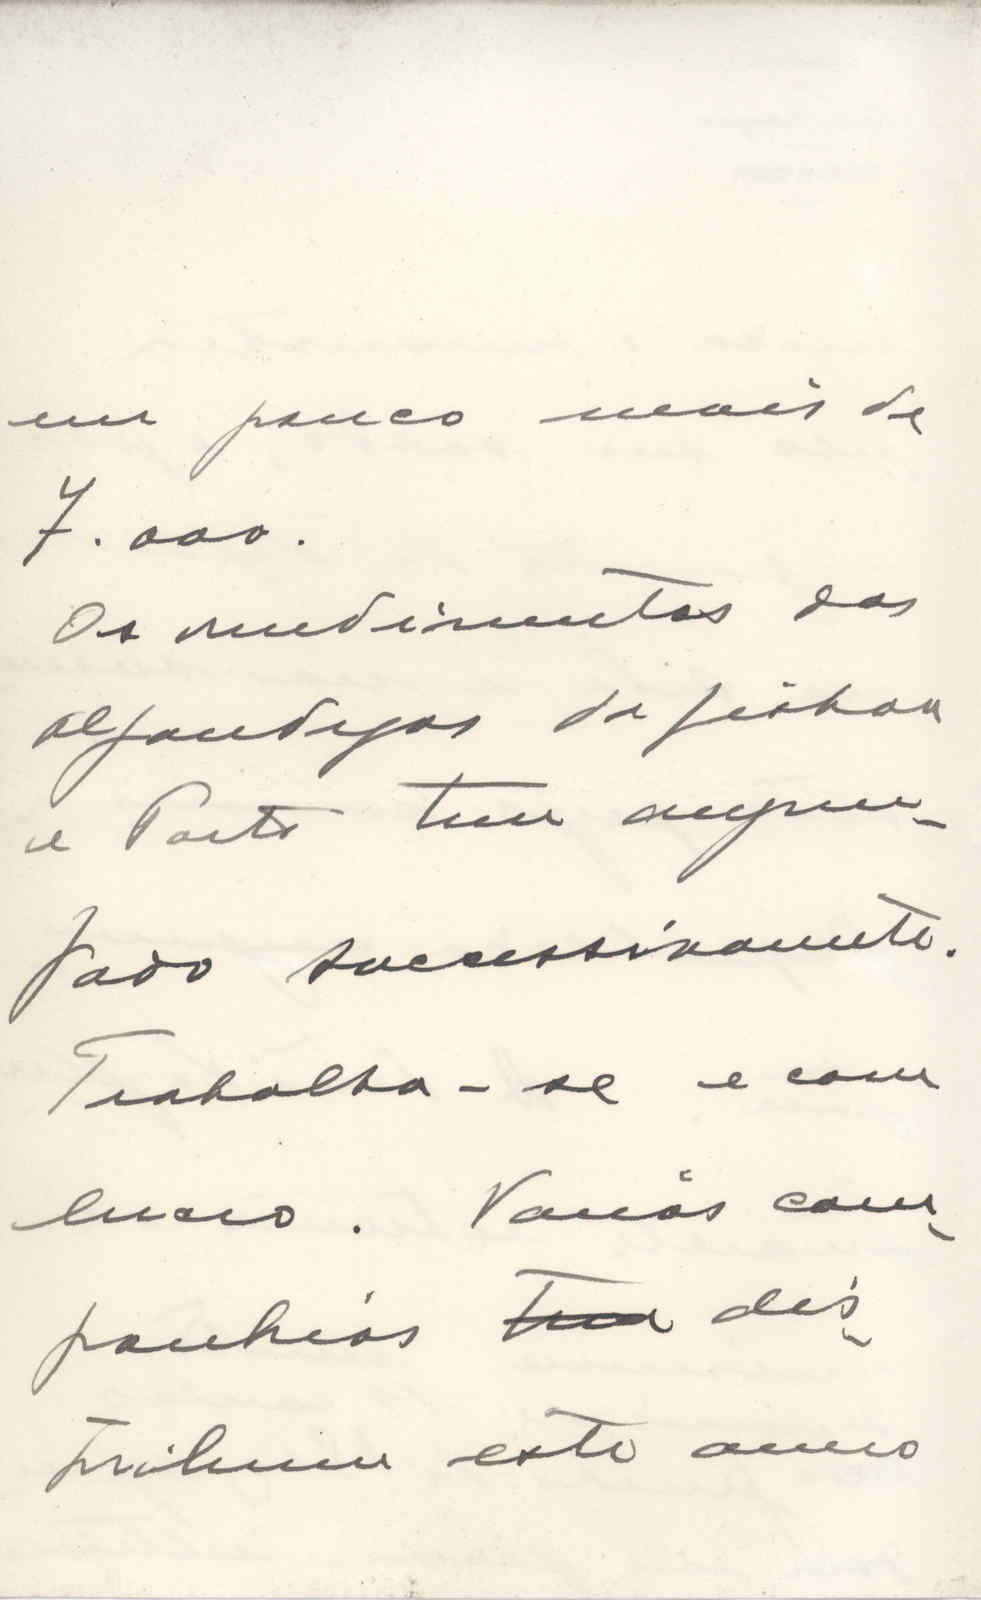 um pouco mais de
7.000.
Os rendimentos das
alfandegas de Lisboa
e Porto tem augmen-
tado successivamente.
Trabalha-se e com
lucro. Varias com-
panhias tem dis-
tribuem este anno